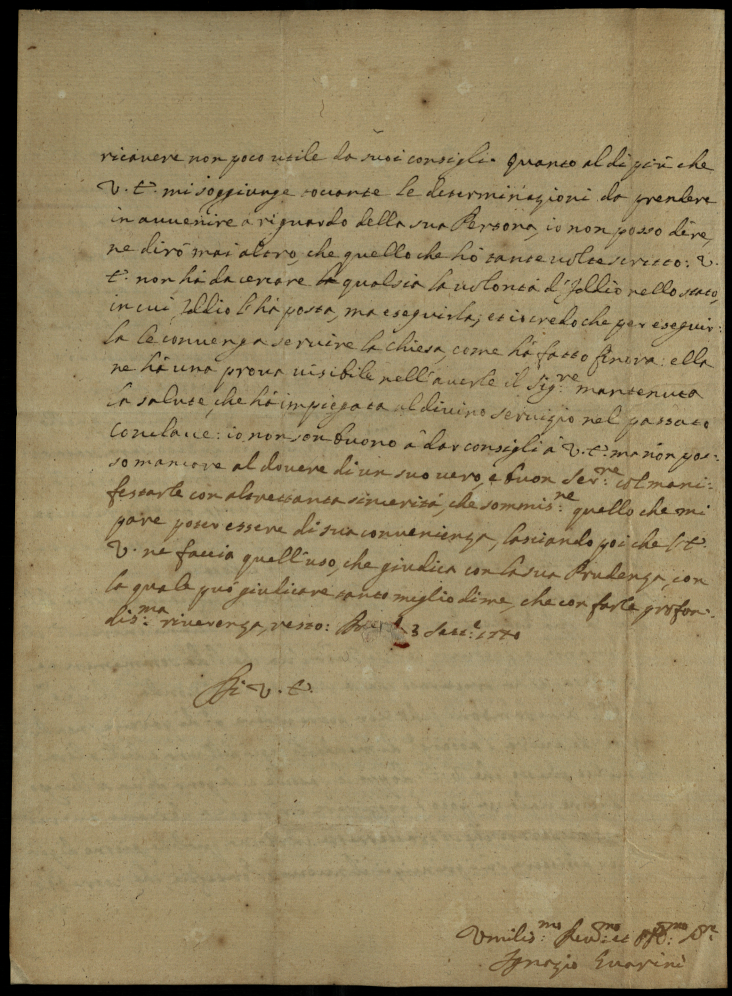 ricavere non poco utile da suoi consigli. Quanto al di più che
V. E. mi soggiunge toccante le determinazioni da prendere
in avvenire à riguardo della sua Persona, io non posso dire,
ne dirò mai altro, che quello che hò tante volte scritto: V.
E. non hà da cercare qualsia la volontà d'Iddio nello stato,
in cui Iddio l'hà posta, ma eseguirla; et io credo che per eseguir:
la le convenga servire la Chiesa, come hà fatto finora: ella
ne hà una prova visibile nell'averle il Sig.re mantenuta
la salute, che hà impiegata al divino servizio nel passato
Conclave: io non son buono à dar consigli à V. E. ma non pos:
so mancare al dovere di un suo vero, e buon Ser.re col mani:
festarle con altrettanta sincerità, che sommis.ne quello che mi
pare poter essere di sua convenienza, lasciando poi che l'E.
V. ne faccia quell'uso, che giudica con la sua Prudenza, con
la quale può giudicare tanto meglio di me, che con farle profon:
dis.ma riverenza, resto: 3 Sett.e 1740
Di V. E.
Umilis.mo Dev.mo et Obb.mo S.re
Ignazio Guarini